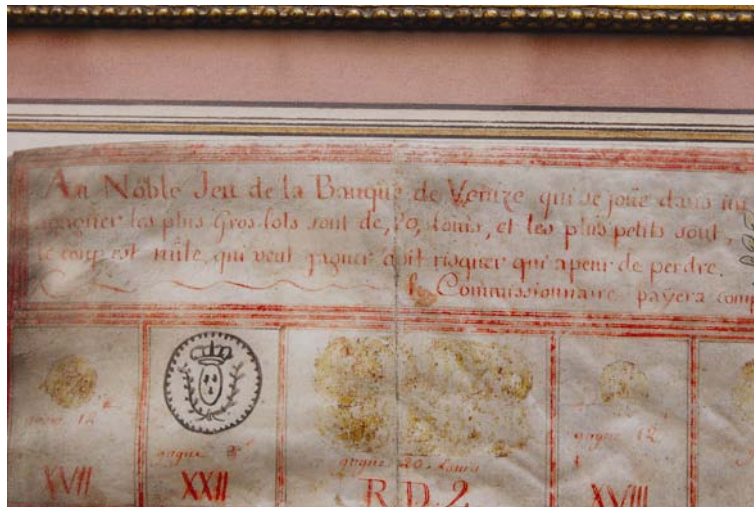 Au Noble Jeu de la Banque de Venize qui se joüe dans un
gagner les plus Gros lots sont de, 20, Louis, et les plus petits sont,
le coup est nûle, qui veut gagner doit risquer qui a peur de perdre.
le Commissionnaire payera comp
gagne 12
gagne
gagne 20 Louis
gagne 12
XVII
XXII
R.D.2
XVIII